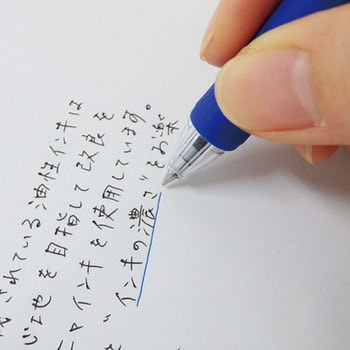 されている油性インキは
心地を目指して改良を
インキを使用しています。
"インキの濃さ"をお楽